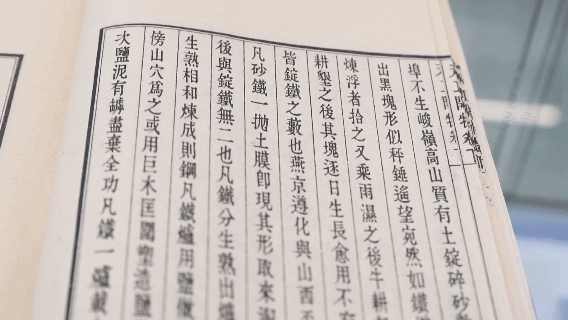 埠不生峻嶺高山質有土錠碎砂
出黑塊形似秤錘遙望宛然如鐵
煉浮者拾之又乘雨濕之後牛耕
耕墾之後其塊逐日生長愈用不
皆錠鐵之藪也燕京遵化與山西
凡砂鐵一拋土膜卽現其形取來淘
後與錠鐵無二也凡鐵分生熟出爐
生熟相和煉成則鋼凡鐵爐用鹽做
傍山穴爲之或用巨木匡圍塑造鹽
次鹽泥有罅盡棄全功凡鐵一爐載